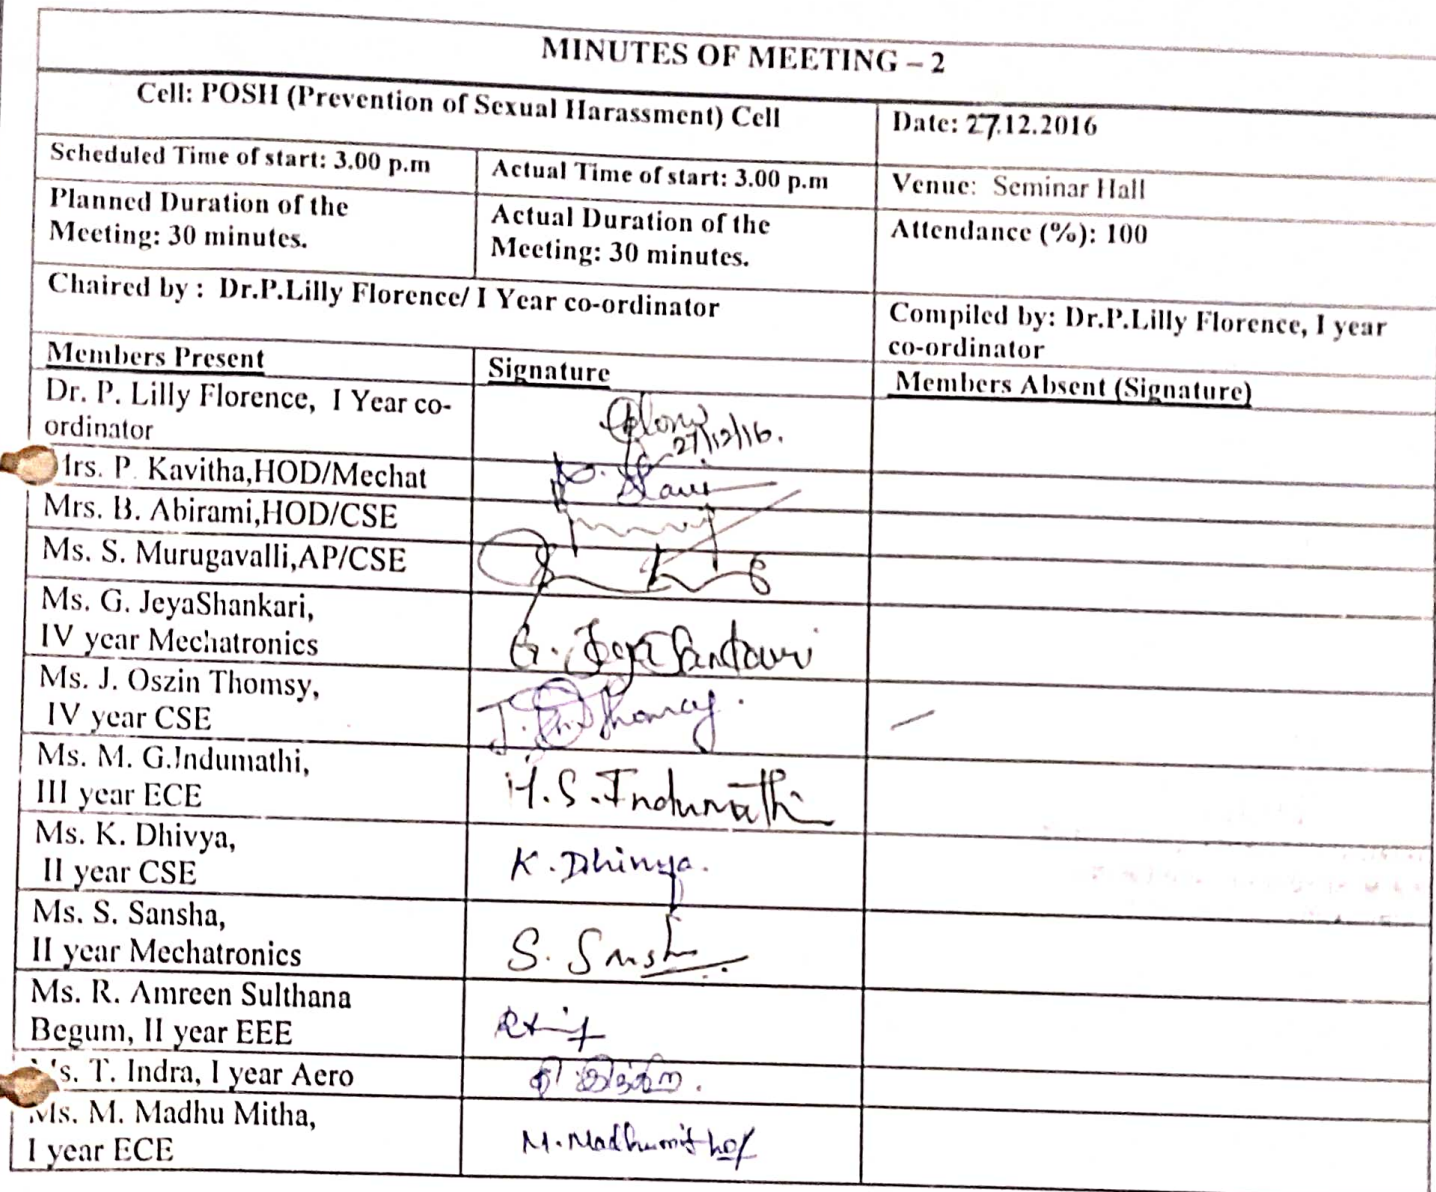 MINUTES OF MEETING – 2
Cell: POSH (Prevention of Sexual Harassment) Cell
Date: 27.12.2016
Scheduled Time of start: 3.00 p.m
Actual Time of start: 3.00 p.m
Venue: Seminar Hall
Planned Duration of the
Meeting: 30 minutes.
Actual Duration of the
Meeting: 30 minutes.
Attendance (%): 100
Chaired by : Dr.P.Lilly Florence/ I Year co-ordinator
Compiled by: Dr.P.Lilly Florence, I year
co-ordinator
Members Present
Signature
Members Absent (Signature)
Dr. P. Lilly Florence, I Year co-
ordinator
27/12/16.
Mrs. P. Kavitha,HOD/Mechat
Mrs. B. Abirami,HOD/CSE
Ms. S. Murugavalli,AP/CSE
Ms. G. JeyaShankari,
IV year Mechatronics
Ms. J. Oszin Thomsy,
IV year CSE
Ms. M. G.Indumathi,
III year ECE
M.S.Indumathi
Ms. K. Dhivya,
II year CSE
K.Dhivya.
Ms. S. Sansha,
II year Mechatronics
Ms. R. Amreen Sulthana
Begum, II year EEE
Ms. T. Indra, I year Aero
Ms. M. Madhu Mitha,
I year ECE